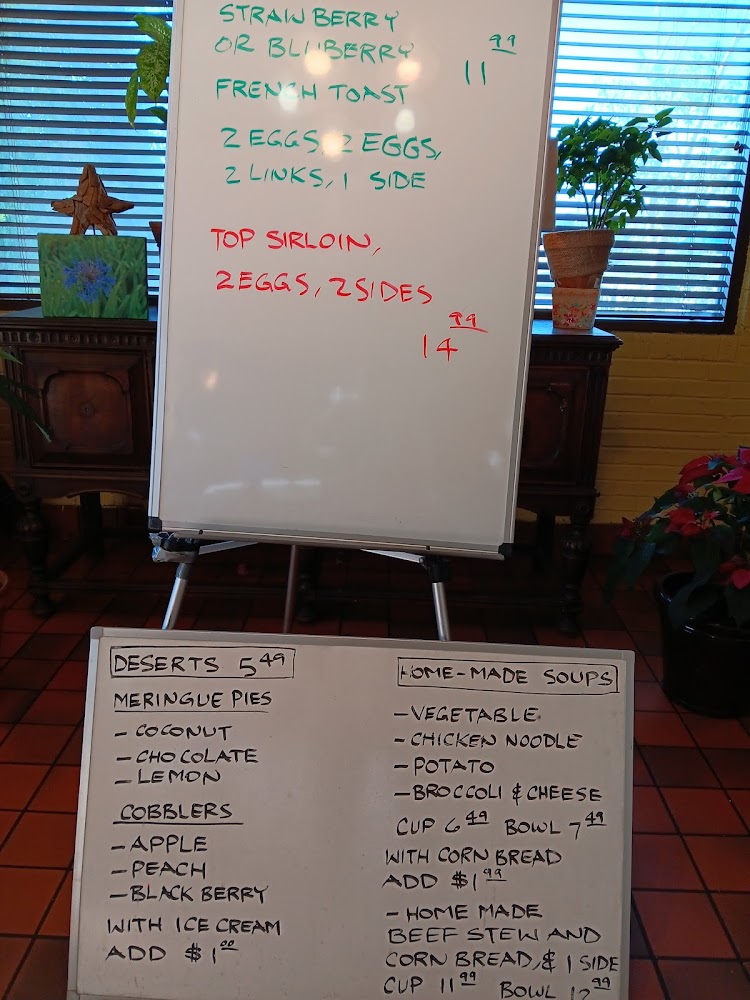 STRAWBERRY
OR BLUBERRY 11 99
FRENCH TOAST
2 EGGS, 2 EGGS,
2 LINKS, 1 SIDE
TOP SIRLOIN,
2 EGGS, 2 SIDES
14 99
DESERTS 5 49
MERINGUE PIES
- COCONUT
- CHOCOLATE
- LEMON
COBBLERS
- APPLE
- PEACH
- BLACK BERRY
WITH ICE CREAM
ADD $1 00
HOME-MADE SOUPS
- VEGETABLE
- CHICKEN NOODLE
- POTATO
- BROCCOLI & CHEESE
CUP 6 49 BOWL 7 49
WITH CORN BREAD
ADD $1 99
- HOME MADE
BEEF STEW AND
CORN BREAD, & 1 SIDE
CUP 11 99 BOWL 12 99